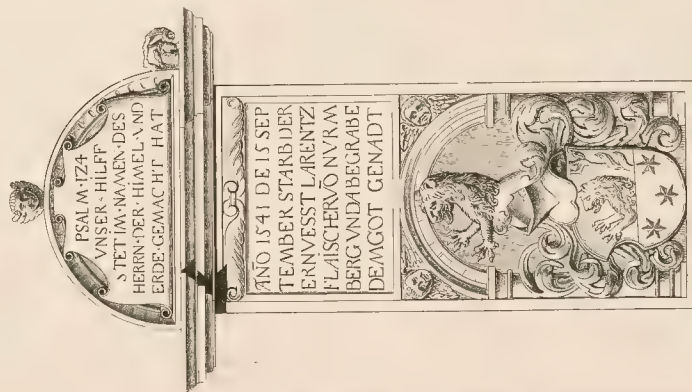 PSALM·124
VNSER·HILFF
STET·IM·NAMEN·DES
HERRN·DER·HIMEL·VND
ERDE·GEMACHT HAT
AÑO 1541 DE 15 SEP
TEMBER STARB DER
ERNVESST LARENTZ
FLAISCHER VŌ NVRM
BERG VNDA BEGRABE
DEM GOT GENADT